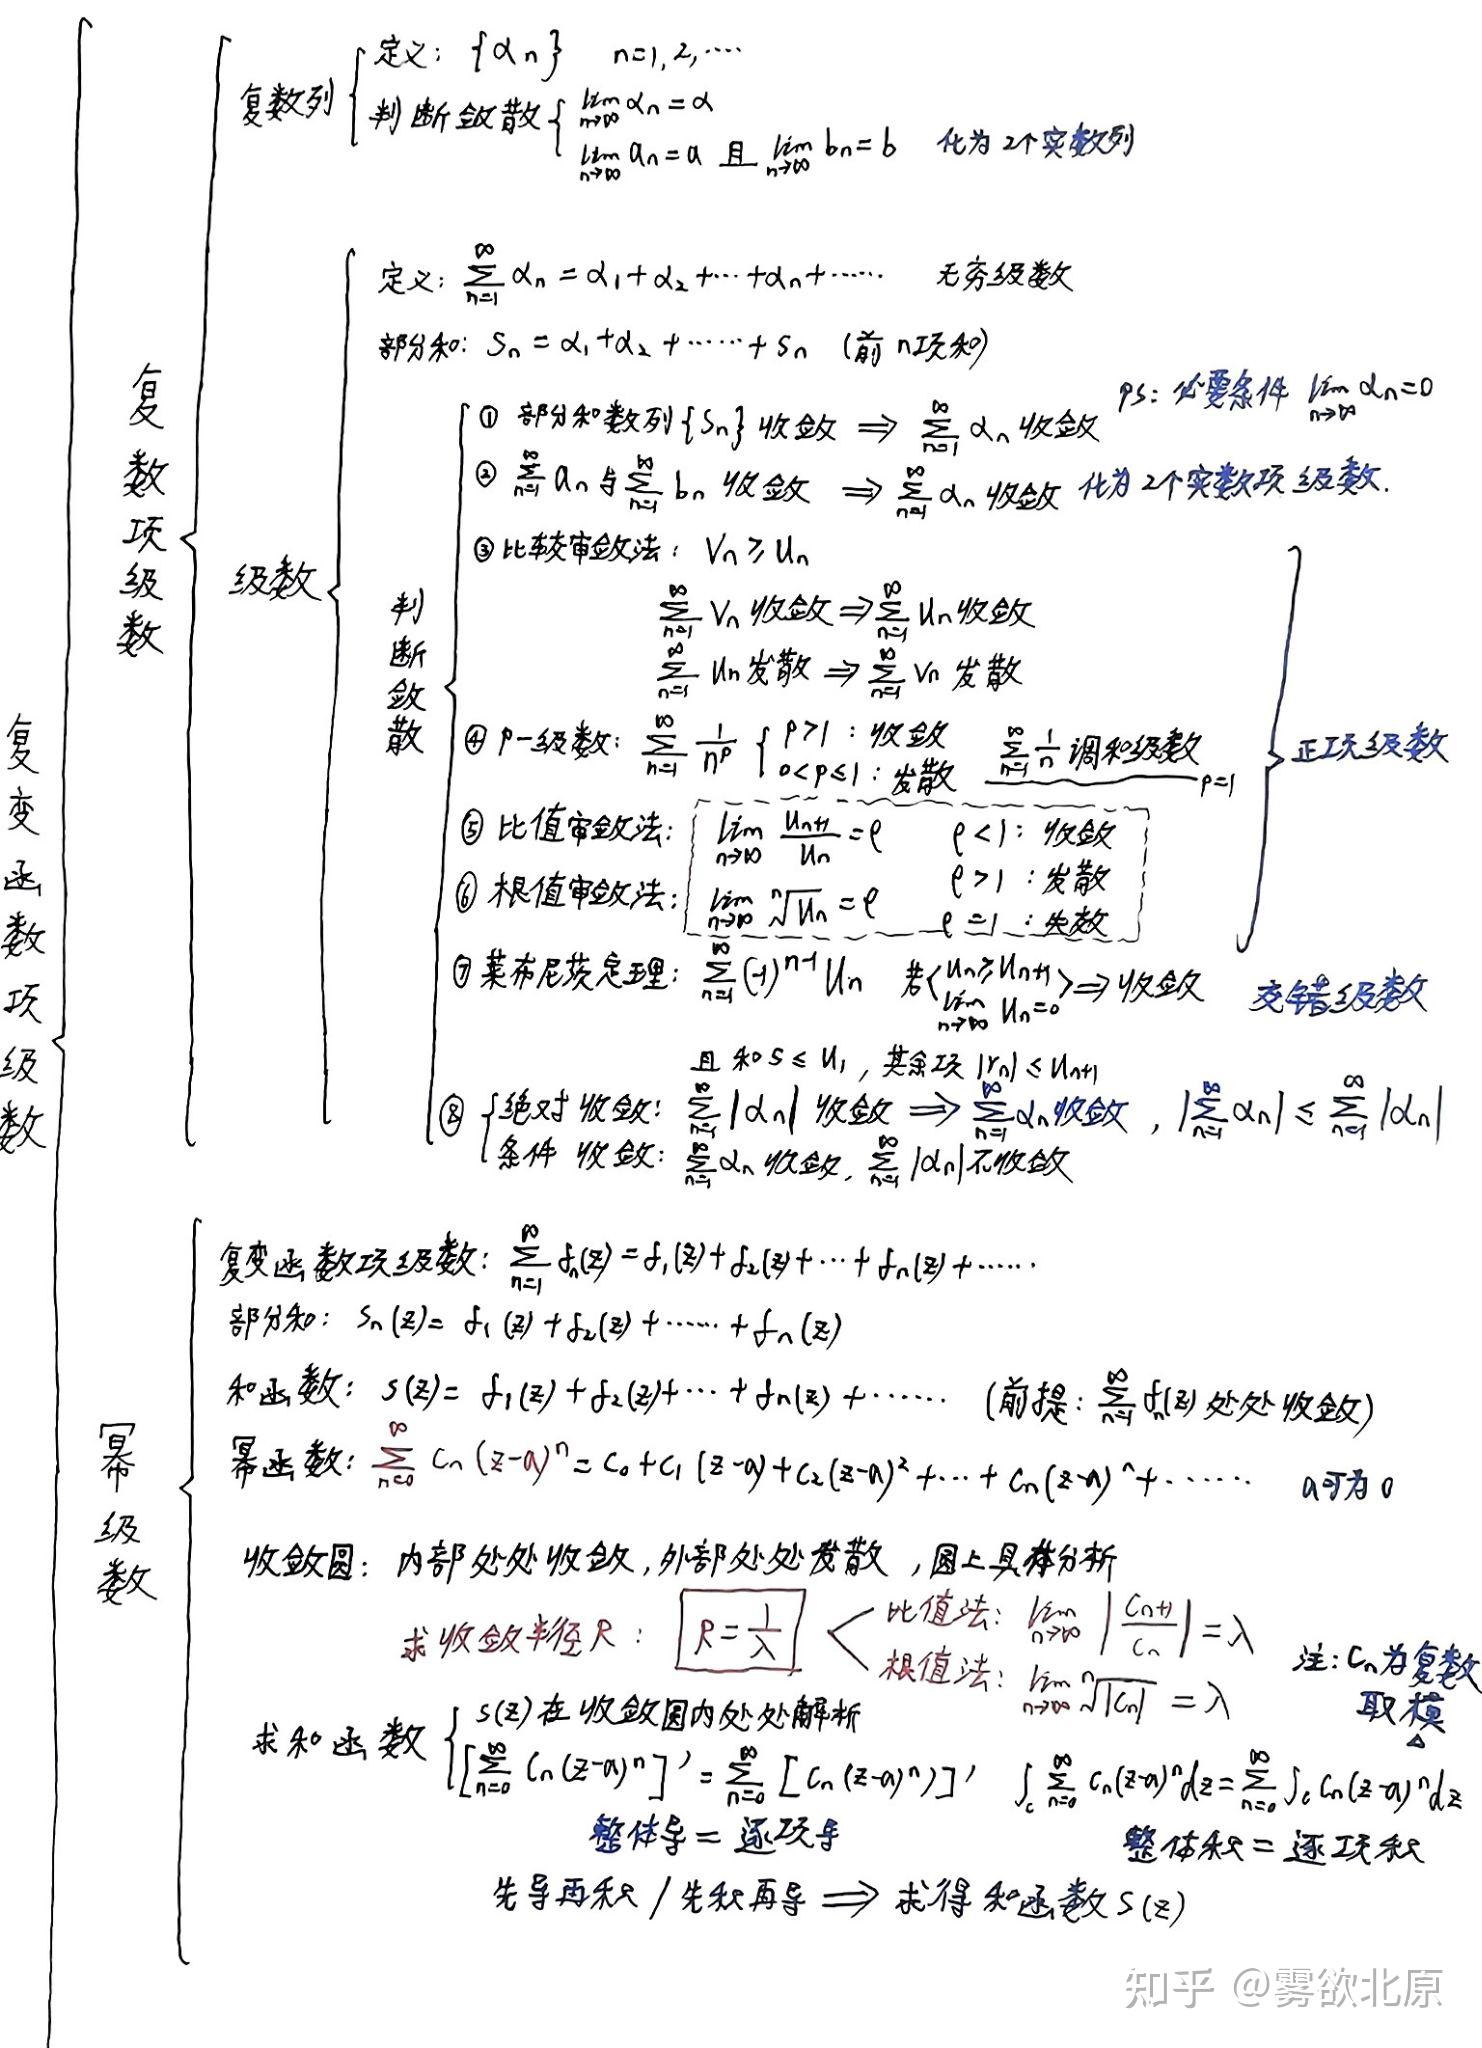 复变函数项级数
复数项级数
复数列
定义: {αn} n=1,2,····
判断敛散 { lim n→∞ αn = α
lim n→∞ an = a 且 lim n→∞ bn = b 化为2个实数列
级数
定义: ∑_{n=1}^∞ αn = α1 + α2 + ··· + αn + ······ 无穷级数
部分和: Sn = α1 + α2 + ······ + Sn (前n项和)
判断敛散
PS: 必要条件 lim n→∞ αn = 0
① 部分和数列{Sn}收敛 ⇒ ∑_{n=1}^∞ αn 收敛
② ∑_{n=1}^∞ an 与 ∑_{n=1}^∞ bn 收敛 ⇒ ∑_{n=1}^∞ αn 收敛 化为2个实数项级数.
③ 比较审敛法: Vn ≥ Un
∑_{n=1}^∞ Vn 收敛 ⇒ ∑_{n=1}^∞ Un 收敛
∑_{n=1}^∞ Un 发散 ⇒ ∑_{n=1}^∞ Vn 发散
④ P-级数: ∑_{n=1}^∞ 1/n^p { P>1: 收敛
0<P≤1: 发散 ∑_{n=1}^∞ 1/n 调和级数 P=1
正项级数
⑤ 比值审敛法: lim n→∞ Un+1/Un = ρ ρ<1: 收敛
ρ>1: 发散
⑥ 根值审敛法: lim n→∞ ⁿ√Un = ρ ρ=1: 失效
⑦ 莱布尼茨定理: ∑_{n=1}^∞ (-1)^{n-1} Un 若< Un≥Un+1
lim n→∞ Un=0 > ⇒ 收敛 交错级数
且和 S ≤ U1, 其余项 |rn| ≤ Un+1
⑧ { 绝对收敛: ∑_{n=1}^∞ |αn| 收敛 ⇒ ∑_{n=1}^∞ αn 收敛, |∑_{n=1}^∞ αn| ≤ ∑_{n=1}^∞ |αn|
条件收敛: ∑_{n=1}^∞ αn 收敛, ∑_{n=1}^∞ |αn| 不收敛
幂级数
复变函数项级数: ∑_{n=1}^∞ fn(z) = f1(z) + f2(z) + ··· + fn(z) + ······
部分和: Sn(z) = f1(z) + f2(z) + ······ + fn(z)
和函数: S(z) = f1(z) + f2(z) + ··· + fn(z) + ······ (前提: ∑_{n=1}^∞ fn(z) 处处收敛)
幂函数: ∑_{n=0}^∞ Cn(z-a)^n = C0 + C1(z-a) + C2(z-a)^2 + ··· + Cn(z-a)^n + ······ a可为0
收敛圆: 内部处处收敛, 外部处处发散, 圆上具体分析
求收敛半径R: R = 1/λ < 比值法: lim n→∞ |Cn+1/Cn| = λ
根值法: lim n→∞ ⁿ√|Cn| = λ
注: Cn为复数
取模
求和函数 { S(z)在收敛圆内处处解析
[∑_{n=0}^∞ Cn(z-a)^n]' = ∑_{n=0}^∞ [Cn(z-a)^n)]' ∫c ∑_{n=0}^∞ Cn(z-a)^n dz = ∑_{n=0}^∞ ∫c Cn(z-a)^n dz
整体导 = 逐项导 整体积 = 逐项积
先导再积 / 先积再导 ⇒ 求得和函数S(z)
知乎 @雾欲北原